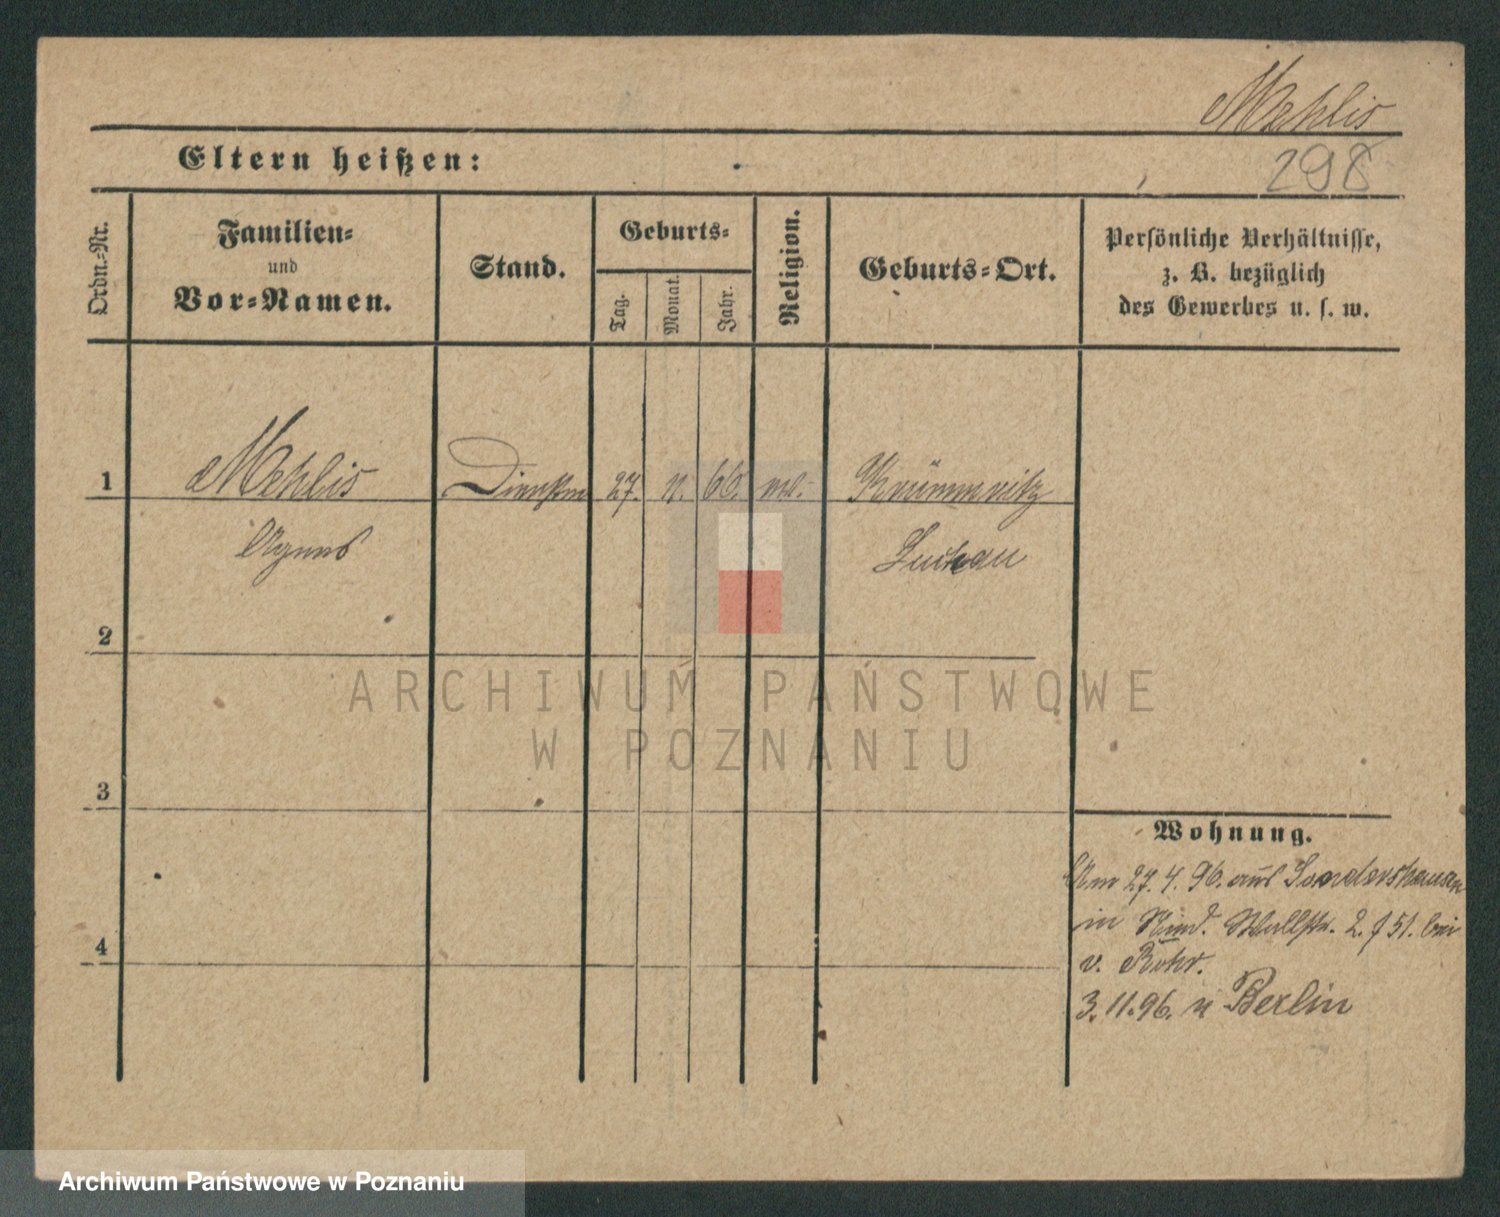 Mehlis
298
Eltern heißen:
Ordn.-Nr.
Familien-
und
Vor-Namen.
Stand.
Geburts-
Tag.
Monat.
Jahr.
Religion.
Geburts-Ort.
Persönliche Verhältnisse,
z. B. bezüglich
des Gewerbes u. s. w.
1
Mehlis
27.
Agnes
Luckau
2
ARCHIWUM PAŃSTWOWE
W POZNANIU
3
Wohnung.
Am 27. 4. 96. aus Sondershausen
in Wallstr. 2. 51. bei
4
v. Rohr.
3. 11. 96. n Berlin
Archiwum Państwowe w Poznaniu